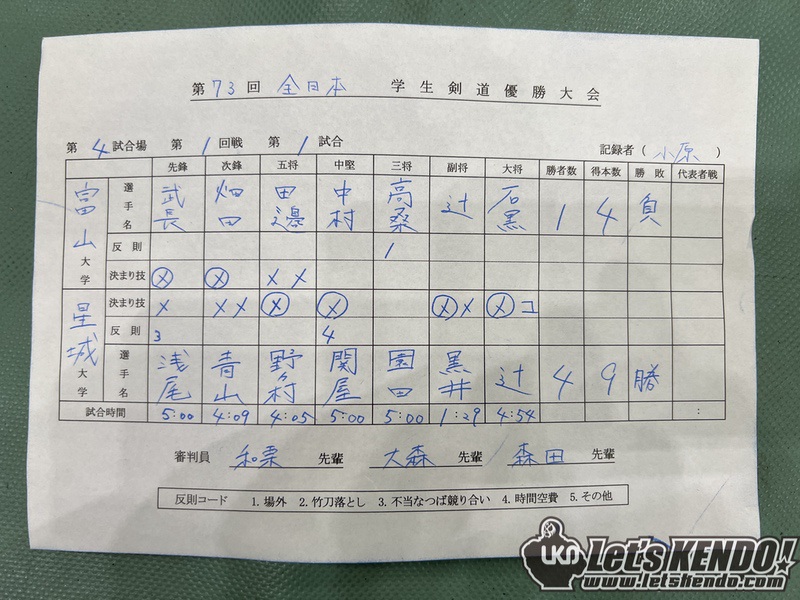 第73回 全日本 学生剣道優勝大会
第 4 試合場 第 1 回戦 第 1 試合 記録者( 小原 )
先鋒 次鋒 五将 中堅 三将 副将 大将 勝者数 得本数 勝敗 代表者戦
富山大学 選手名 武長 畑田 田邉 中村 高桑 辻 石黒 1 4 負
反則 1
決まり技 ㋱ ㋱ メメ
星城大学 決まり技 メ メメ ㋱ ㋱ ㋱メ ㋱コ
反則 3 4
選手名 浅尾 青山 野々村 関屋 園田 黒井 辻 4 9 勝
試合時間 5:00 4:09 4:05 5:00 5:00 1:29 4:54 :
審判員 和栗 先輩 大森 先輩 森田 先輩
反則コード 1. 場外 2. 竹刀落とし 3. 不当なつば競り合い 4. 時間空費 5. その他
LKN Let's KENDO!
www.letskendo.com